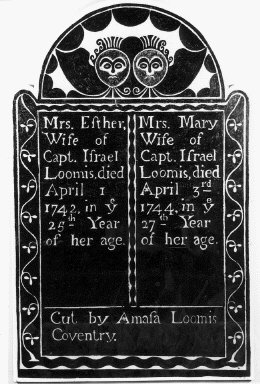 Mrs. Eſther,
Wife of
Capt. Iſrael
Loomis, died
April 1
1742, in yͤ
25th Year
of her age.
Mrs. Mary
Wife of
Capt. Iſrael
Loomis, died
April 3rd
1744, in yͤ
27th Year
of her age.
Cut by Amaſa Loomis
Coventry.